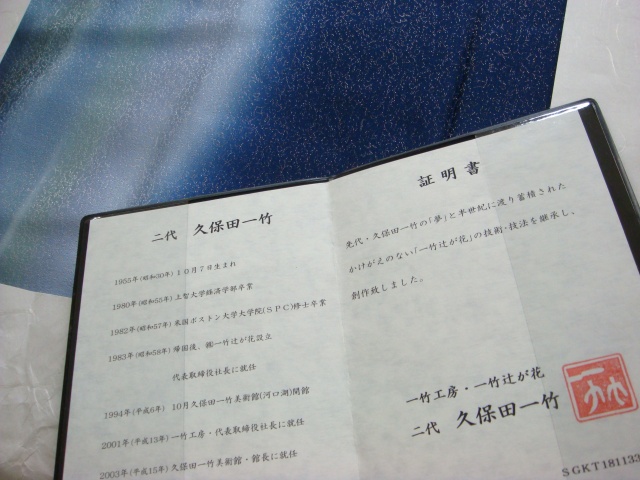 二代 久保田一竹
1955年(昭和30年)10月7日生まれ
1980年(昭和55年)上智大学経済学部卒業
1982年(昭和57年)米国ボストン大学大学院(SPC)修士卒業
1983年(昭和58年)帰国後、㈱一竹辻が花設立
代表取締役社長に就任
1994年(平成6年) 10月久保田一竹美術館(河口湖)開館
2001年(平成13年)一竹工房・代表取締役社長に就任
2003年(平成15年)久保田一竹美術館・館長に就任
証明書
先代・久保田一竹の「夢」と半世紀に渡り蓄積された
かけがえのない「一竹辻が花」の技術・技法を継承し、
創作致しました。
一竹工房・一竹辻が花
二代 久保田一竹
一竹
SGKT181133